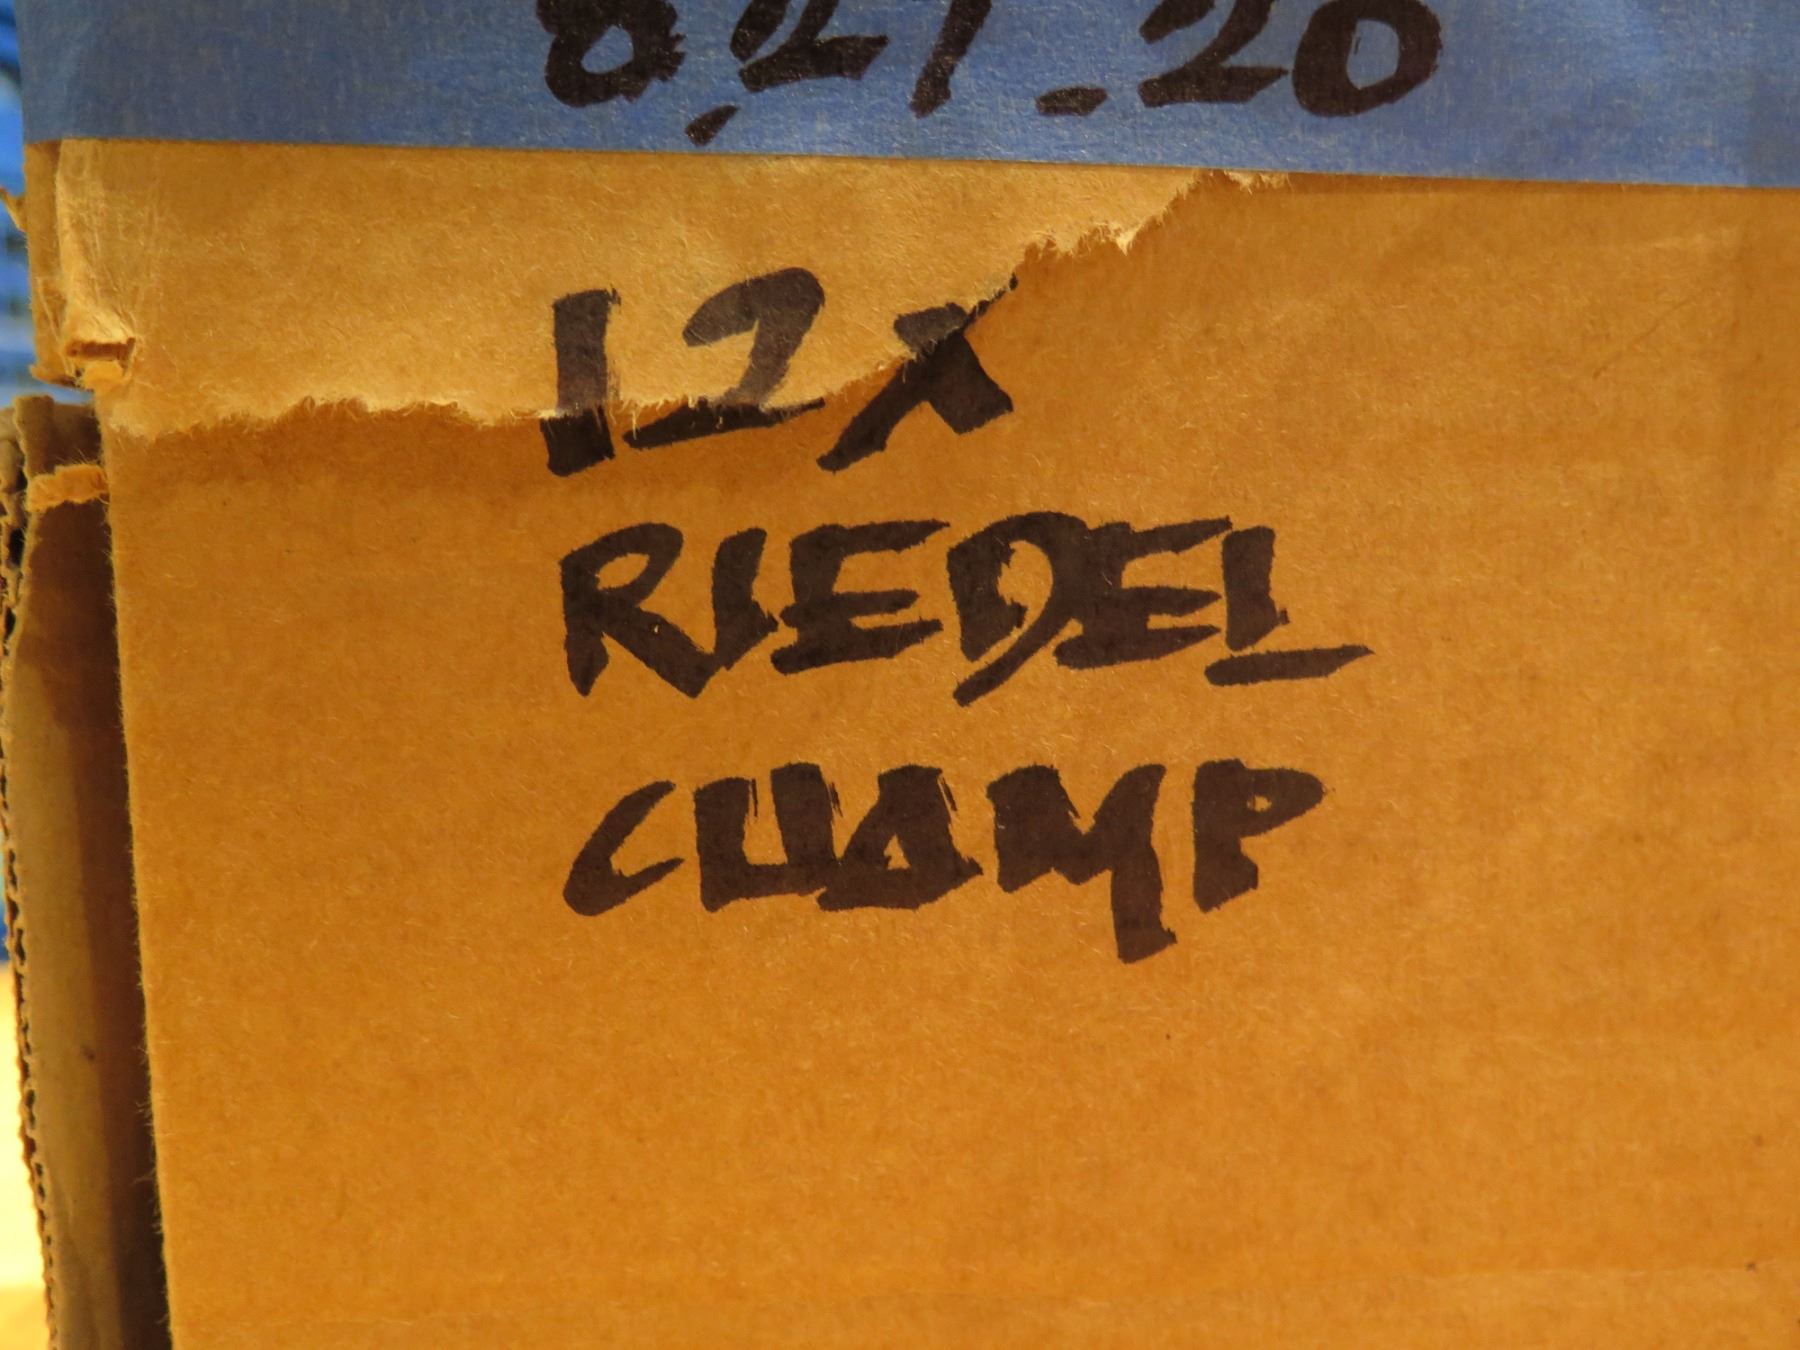 8.27.20
12x
RIEDEL
CHAMP